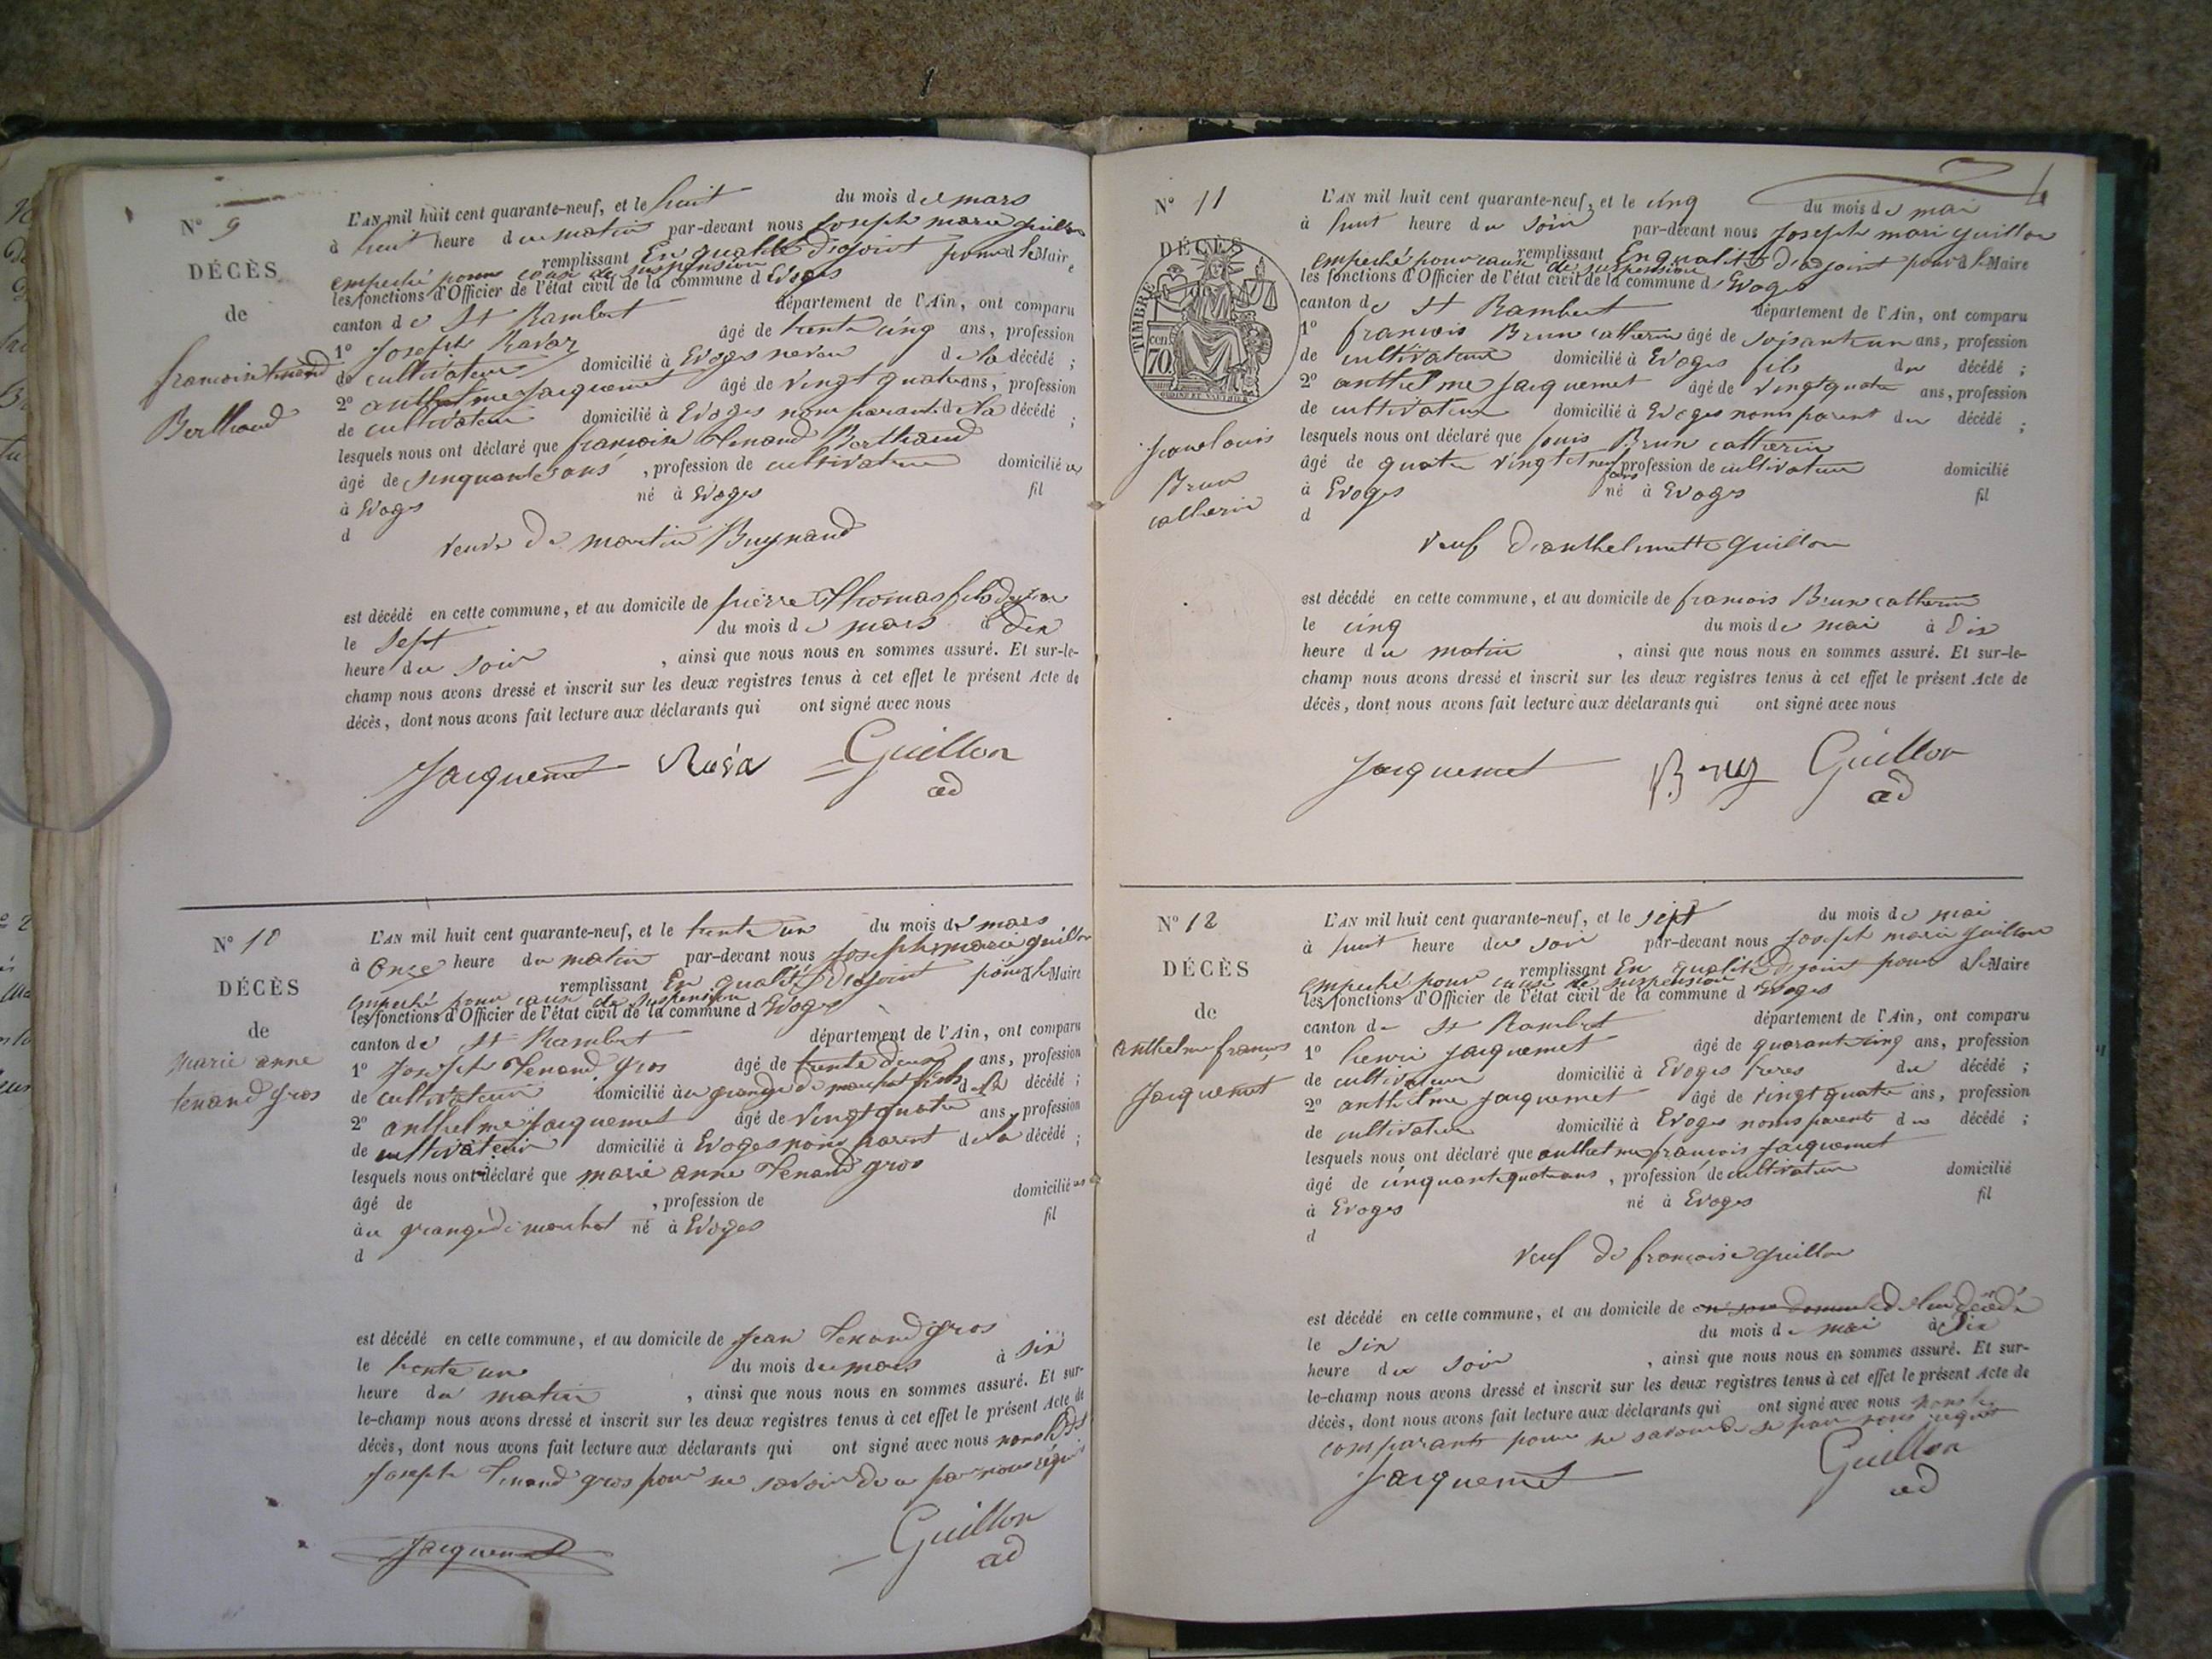 N° 9
DÉCÈS
de
francoise tenand
Berthaud
L'AN mil huit cent quarante-neuf, et le huit du mois de mars
à huit heure du matin par-devant nous Joseph marie guillon
remplissant En qualité d'ajoint pour le Maire
empeché pour cause de suspension
les fonctions d'Officier de l'état civil de la commune d Evoges
canton de St Rambert département de l'Ain, ont comparu
1° Joseph Ravaz âgé de trente cinq ans, profession
de cultivateur domicilié à Evoges neveu de la décédé ;
2° anthelme Jacquemet âgé de vingt quatre ans, profession
de cultivateur domicilié à Evoges nom parant de la décédé ;
lesquels nous ont déclaré que francoise tenand Berthaud
âgé de sinquante ans , profession de cultivatrice domicilié
à Evoges né à Evoges fil
d
veuve de martin Buynand
est décédé en cette commune, et au domicile de pierre Thomas fils
le sept du mois de mars à dix
heure du soir , ainsi que nous nous en sommes assuré. Et sur-le-
champ nous avons dressé et inscrit sur les deux registres tenus à cet effet le présent Acte de
décès, dont nous avons fait lecture aux déclarants qui ont signé avec nous
Jacquemet Guillon
ad
N° 10
DÉCÈS
de
marie anne
tenand gros
L'AN mil huit cent quarante-neuf, et le trente un du mois de mars
à Onze heure du matin par-devant nous Joseph marie guillon
remplissant En qualité d'ajoint pour le Maire
empeché pour cause de suspension
les fonctions d'Officier de l'état civil de la commune d Evoges
canton de St Rambert département de l'Ain, ont comparu
1° Joseph Tenand gros âgé de trente deux ans, profession
de cultivateur domicilié au grange de de la décédé ;
2° anthelme Jacquemet âgé de vingt quatre ans, profession
de cultivateur domicilié à Evoges nom parent de la décédé ;
lesquels nous ont déclaré que marie anne Tenand gros
âgé de , profession de domicilié
au grange de né à Evoges fil
d
est décédé en cette commune, et au domicile de Jean Tenand gros
le trente un du mois de mars à six
heure du matin , ainsi que nous nous en sommes assuré. Et sur-
le-champ nous avons dressé et inscrit sur les deux registres tenus à cet effet le présent Acte de
décès, dont nous avons fait lecture aux déclarants qui ont signé avec nous
Joseph Tenand gros pour ne savoir de ce par nous requi
Jacquemet Guillon
ad
N° 11
DÉCÈS
TIMBRE
70 cen
Jean louis
Brun
catherin
L'AN mil huit cent quarante-neuf, et le cinq du mois de mai
à huit heure du soir par-devant nous Joseph mari guillon
remplissant En qualité d'adjoint pour le Maire
empeché pour cause de suspension
les fonctions d'Officier de l'état civil de la commune d Evoges
canton de St Rambert département de l'Ain, ont comparu
1° francois Brun catherin âgé de soisante un ans, profession
de cultivateur domicilié à Evoges fils du décédé ;
2° anthelme Jacquemet âgé de vingt quatre ans, profession
de cultivateur domicilié à Evoges nom parent du décédé ;
lesquels nous ont déclaré que louis Brun catherin
âgé de quatre vingt et neuf ans profession de cultivateur domicilié
à Evoges né à Evoges fil
d
veuf d'anthelmette guillon
est décédé en cette commune, et au domicile de francois Brun catherin
le cinq du mois de mai à dix
heure du matin , ainsi que nous nous en sommes assuré. Et sur-le-
champ nous avons dressé et inscrit sur les deux registres tenus à cet effet le présent Acte de
décès, dont nous avons fait lecture aux déclarants qui ont signé avec nous
Jacquemet Guillon
ad
N° 12
DÉCÈS
de
anthelme françois
Jacquemet
L'AN mil huit cent quarante-neuf, et le sept du mois de mai
à huit heure du soir par-devant nous Joseph marie guillon
remplissant En qualité d'joint pour le Maire
empeché pour cause de suspension
les fonctions d'Officier de l'état civil de la commune d Evoges
canton de St Rambert département de l'Ain, ont comparu
1° henri Jacquemet âgé de quarante cinq ans, profession
de cultivateur domicilié à Evoges freres du décédé ;
2° anthelme Jacquemet âgé de vingt quatre ans, profession
de cultivateur domicilié à Evoges nom parent du décédé ;
lesquels nous ont déclaré que anthelme francois Jacquemet
âgé de cinquante quatre ans , profession de cultivateur domicilié
à Evoges né à Evoges fil
d
veuf de francoise guillon
est décédé en cette commune, et au domicile de
le six du mois de mai à dix
heure du soir , ainsi que nous nous en sommes assuré. Et sur-
le-champ nous avons dressé et inscrit sur les deux registres tenus à cet effet le présent Acte de
décès, dont nous avons fait lecture aux déclarants qui ont signé avec nous
comparant pour ne savoir de ce par nous requi
Jacquemet Guillon
ad